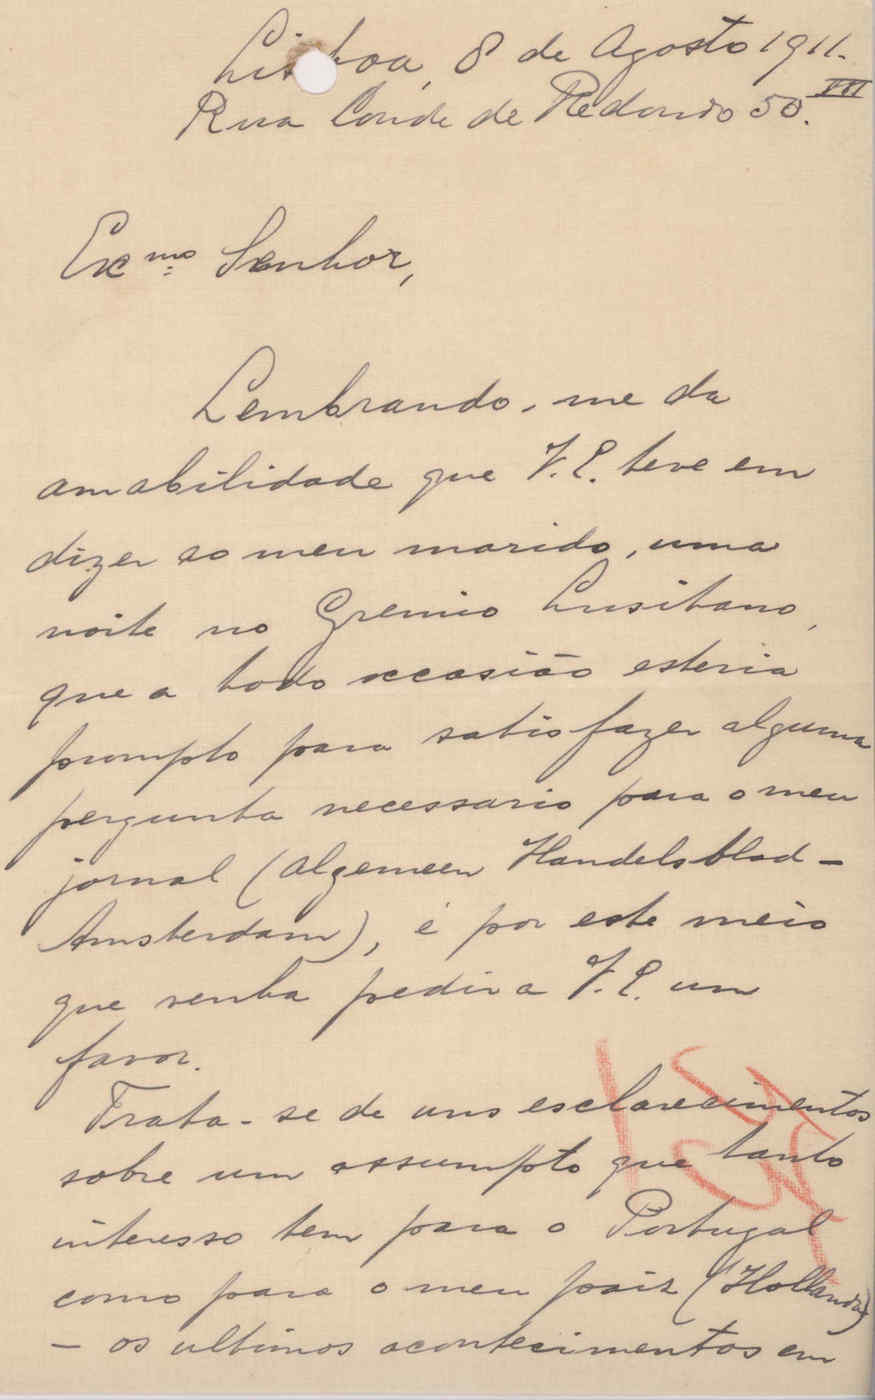 Lisboa, 8 de Agosto 1911.
Rua Conde de Redondo 50. III
Exmo Senhor,
Lembrando-me da
amabilidade que V.E. teve em
dizer ao meu marido, uma
noite no Gremio Lusitano,
que a todo occasião esteria
prompto para satisfazer alguma
pergunta necessario para o meu
jornal (Algemeen Handelsblad -
Amsterdam), é por este meio
que venho pedir a V.E. um
favor.
Trata-se de uns esclarecimentos
sobre um assumpto que tanto
interesso tem para o Portugal
como para o meu paiz (Hollanda)
- os ultimos acontecimentos em